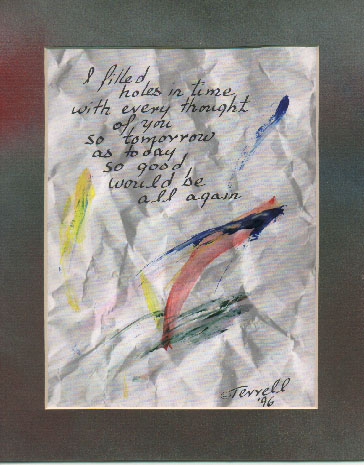 I filled
holes in time
with every thought
of you
so tomorrow
as today
so good,
would be
all again
Terrell
'96